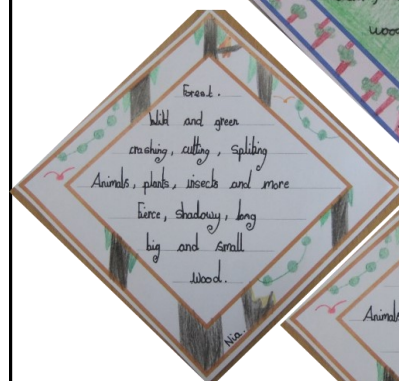 Forest.
Wild and green
crashing, cutting, spliting
Animals, plants, insects and more
fierce, shadowy, long
big and small
wood.
Nia.
wood
Animals